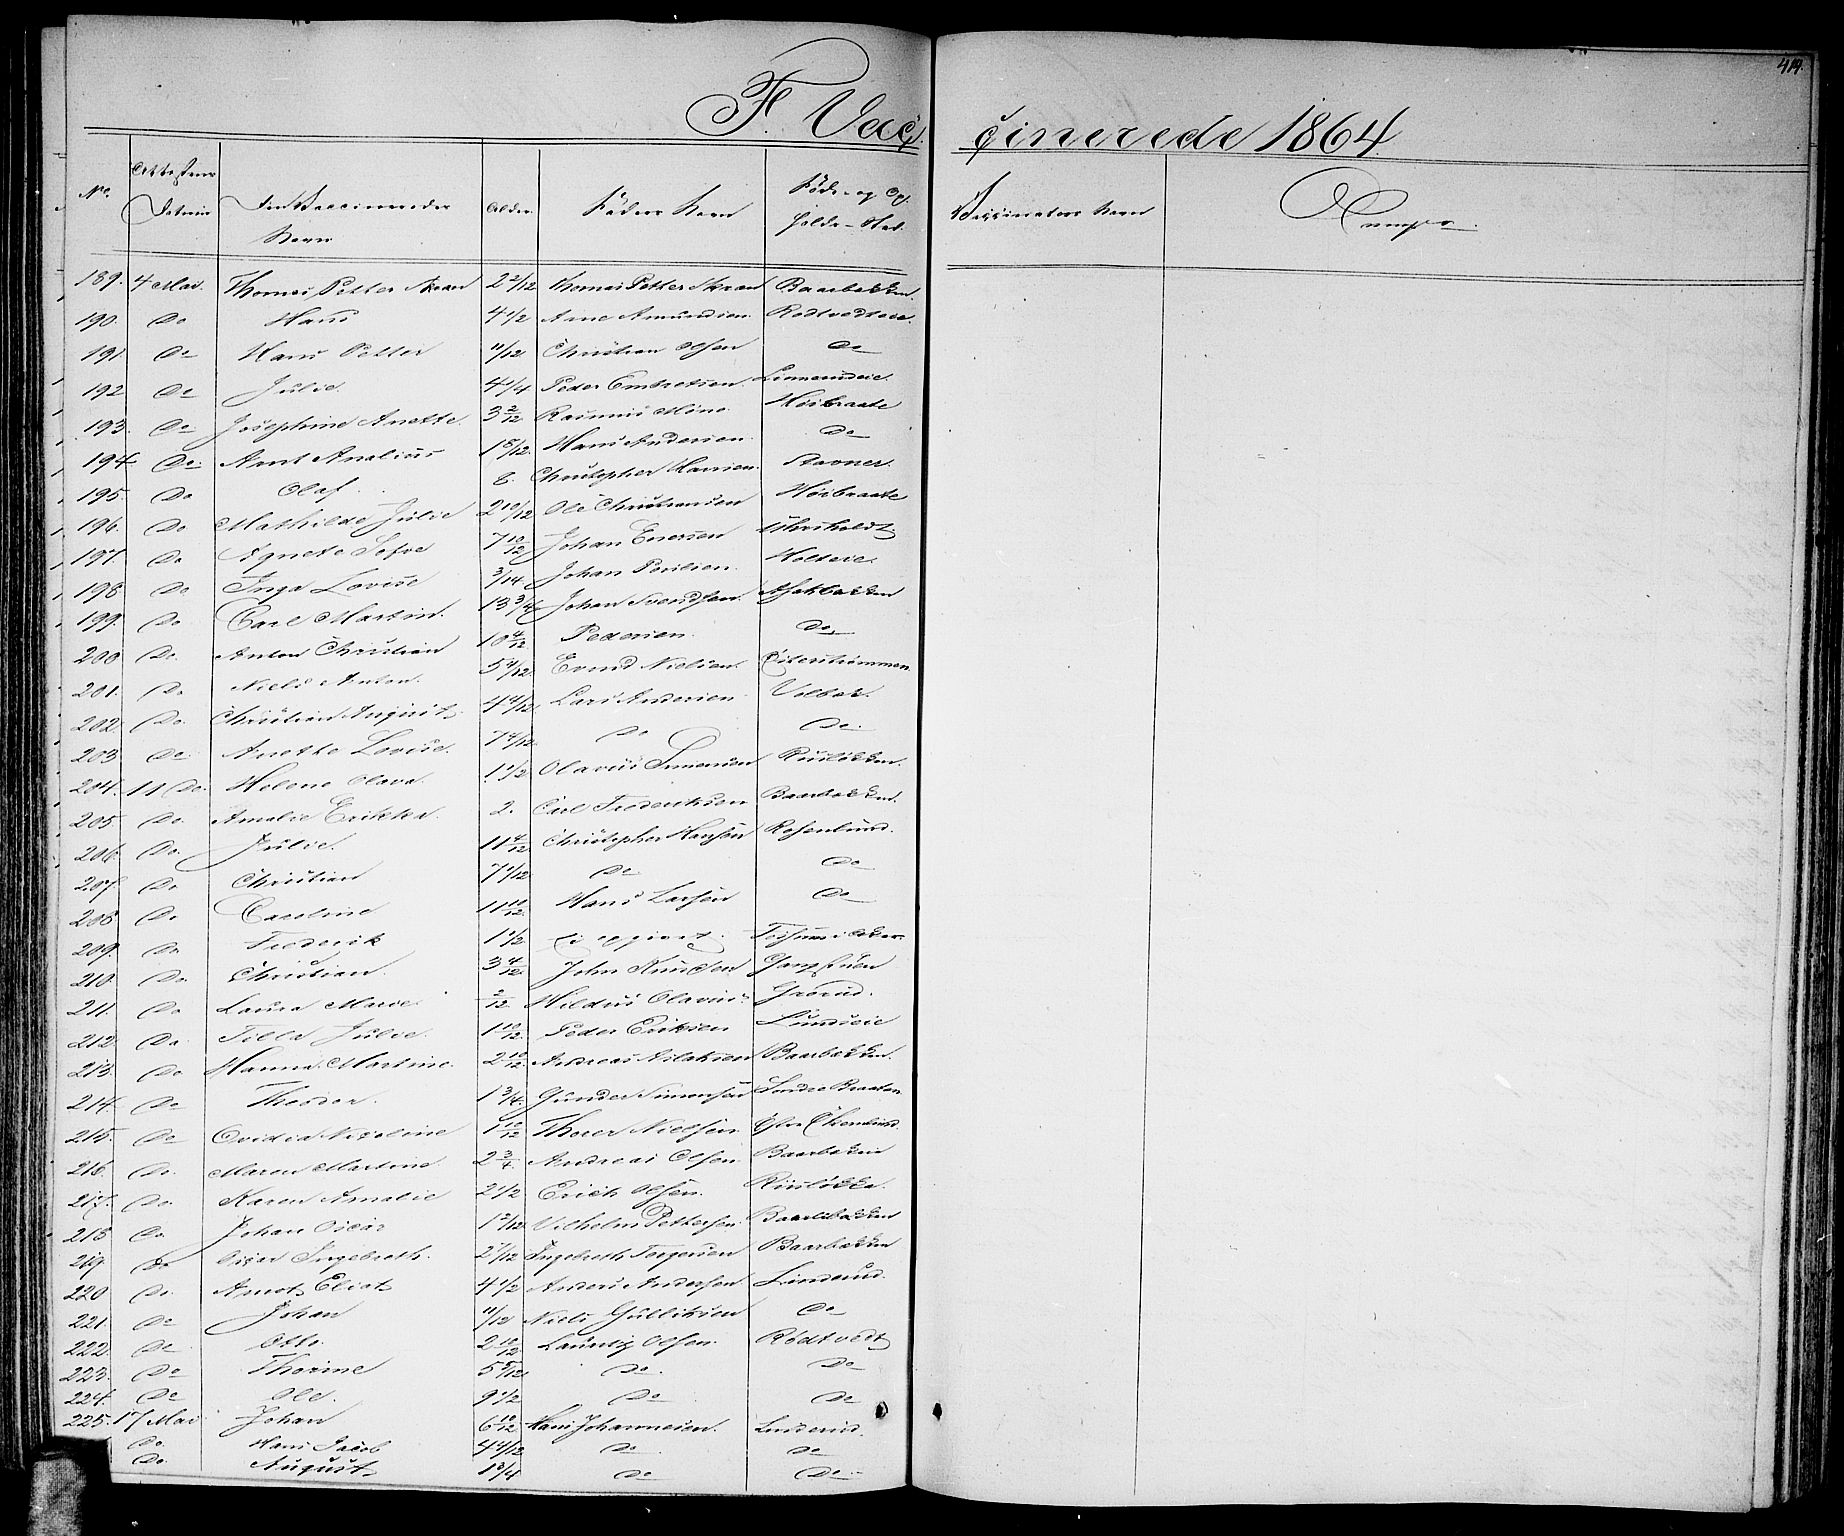 419.
F. Vacçinerede 1864.
No. Attestens Datum Den Vaccineredes Navn Alder. Faders Navn Føde- og Opholds-Sted. Vaccinators Navn
189. 4 Mai. Thomas Petter Skran 2 2/12 Thomas Petter Skran Baarbakken.
190. Do Hans 4 1/2 Arne Amundsen. Rødtvedteie.
191 Do Hans Petter 11/12 Christian Olsen Do
192 Do Julie. 4 1/4 Peder Embretsen. Linnerudeie.
193. Do Josephine Anette. 3 2/12 Rasmus Moine. Høibraate
194 Do. Arnt Analius 1 8/12 Hans Andersen. Do
195. Do Olaf 8. Christopher Hansen. Stavner.
196. Do Mathilde Julie 2 10/12 Ole Christiansen Høibraate
197. Do Agnete Sofie 7 10/12 Johan Enersen
198 Do Inga Lovise 3/14 Johan Poulsen. Holteie.
199. Do Carl Martin. 13 3/4 Johan Svendsen. Askbakken
200 Do. Anton Christian 10 4/12 Pedersen. Do.
201. Do Niels Anton. 5 4/12 Evend Nielsen.
202. Do. Christian August 4 4/12 Lars Andersen Veltet.
203 Do Anette Lovise. 7 4/12 Do Do.
204. 11 Do. Helene Olava. 1 1/2 Olavus Simensen Ruseløkken.
205. Do. Amalie Erikka. 2. Carl Frederiksen Baarbakken.
206. Do. Julie. 11 4/12 Christopher Hansen Rosenlund.
207. Do Christian 7 1/12 Do Do
208 Do Caroline 11 10/12 Hans Larsen Do
209. Do Frederik 1 1/2 ei opgivet.
210. Do. Christian. 3 4/12 John Knudsen
211. Do Laura Marie. 2/12 Mildrus Olavius. Grorud.
212. Do Tilla Julie. 1 10/12 Peder Eriksen Lundseie
213. Do Hanna Martine. 2 10/12 Andreas Aslaksen Baarbakken.
214. Do Theodor. 1 3/4. Gunder Simensen Søndre Braaten
215. Do Ovidia Nicoline 1 10/12 Thorer Nielsen
216. Do. Maren Martine 2 3/4 Andreas Olsen Baarbakken
217. Do. Karen Amalie 2 1/2 Erich Olsen. Ruseløkka.
218 Do. Johan Oscar 1 2/12 Vilhelm Pettersen. Baarbakken
219. Do Oscar Ingebreth. 2 1/12 Ingebreth Torgersen Baarbakken
220 Do. Arnt Eliat 4 1/2 Anders Andersen Linderud.
221. Do Johan 11/12 Niels Gulliksen Do
222 Do Otto. 2 10/12 Lauritz Olsen. Rødtvedt
223. Do Thorine 5 5/12 Do. Do
224. Do Ole. 9 1/2 Do Do
225. 17 Mai Johan 6 10/12 Hans Johannesen Linderud.
Do. Hans Jacob 4 4/12 Do. Do
Do. August 1 3/4 Do Do.